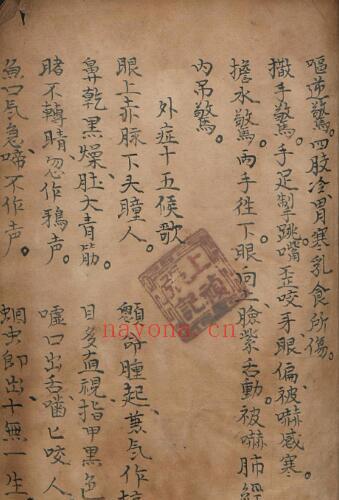 嘔逆驚。四肢冷胃寒乳食所傷。
撒手驚。手足掣跳嘴歪咬牙眼偏被嚇感寒。
擔水驚。兩手徃下眼向上臉紫舌動。被嚇肺經
內吊驚。
外症十五候歌
眼上赤脉下头瞳人。顖命腫起兼气作坑
鼻乾黑燥肚大青筋。目多直視指甲黑色
睹不轉睛忽作鴉声。噓口出舌嚙匕咬人
魚口气急啼不作声。蛔虫即出十無一生
nayona.cn